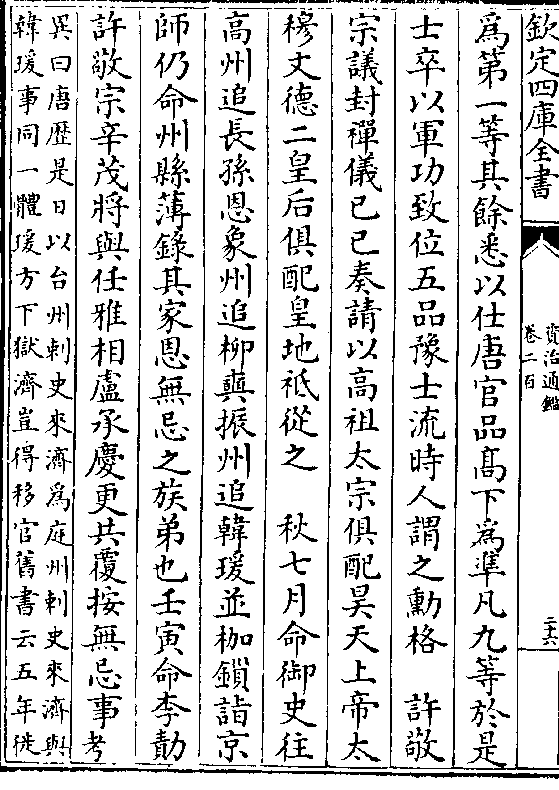 欽定四庫全書
資治通鑑
卷二百
二十六
為第一等其餘悉以仕唐官品髙下為準凡九等於是
士卒以軍功致位五品豫士流時人謂之勳格　許敬
宗議封禪儀己巳奏請以高祖太宗俱配昊天上帝太
穆文德二皇后俱配皇地祗從之　秋七月命御史往
高州追長孫恩象州追柳奭振州追韓瑗並枷鎖詣京
師仍命州縣薄錄其家恩無忌之族弟也壬寅命李勣
許敬宗辛茂將與任雅相盧承慶更共覆按無忌事考
異曰唐歴是日以台州刺史來濟為庭州刺史來濟與
韓瑗事同一體瑗方下獄濟豈得移官舊書云五年徙